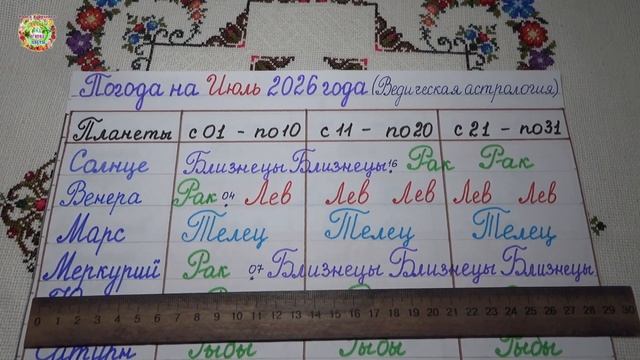 Погода на Июль 2026 года (Ведическая астрология)
Планеты с 01 - по 10 с 11 - по 20 с 21 - по 31
Солнце Близнецы Близнецы 16 Рак Рак
Венера Рак 04 Лев Лев Лев Лев Лев
Марс Телец Телец Телец
Меркурий Рак 07 Близнецы Близнецы Близнецы
0 1 2 3 4 5 6 7 8 9 10 11 12 13 14 15 16 17 18 19 20 21 22 23 24 25 26 27 28 29 30
Сатурн Рыбы Рыбы Рыбы